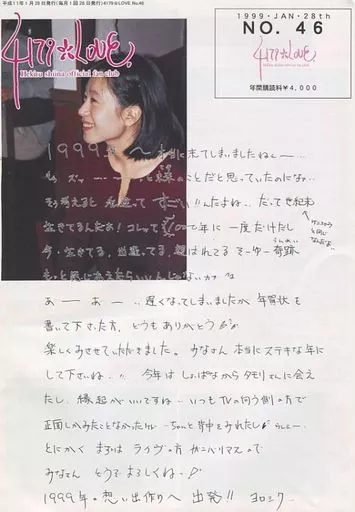 平成11年1月28日発行(毎月1回28日発行)4179☆LOVE No.46
4179☆LOVE
Hekiru shiina official fan club
1999・JAN・28th
NO. 46
4179☆LOVE
年間購読料¥4,000
1999年〜 本当に来てしまいましたねぇー…
と未来のことだと思っていたのにな…
そう考えると
すごい!!んだよね… だって世紀末
生きてるんだぁ! コレって 年に一度だけだし
今・生きてる、出逢ってる、 奇跡
もっと
あー あー … 遅くなってしまいましたが 年賀状を
書いて下さった方、どうもありがとう
楽しくみさせていただきました。 みなさん 本当にステキな年に
して下さいね…!! 今年は しょっぱなから タモリさんに会え
たし、縁起がいいですね… いつもTVの向う側の方で
正面しかみたことなかったけど… ちゃんと 背中をみれたし らしー…
とにかく まずは ライヴの方 ガンバリマスので
みなさん どうぞよろしくねー
1999年の想い出作りへ 出発!! ヨロシクー